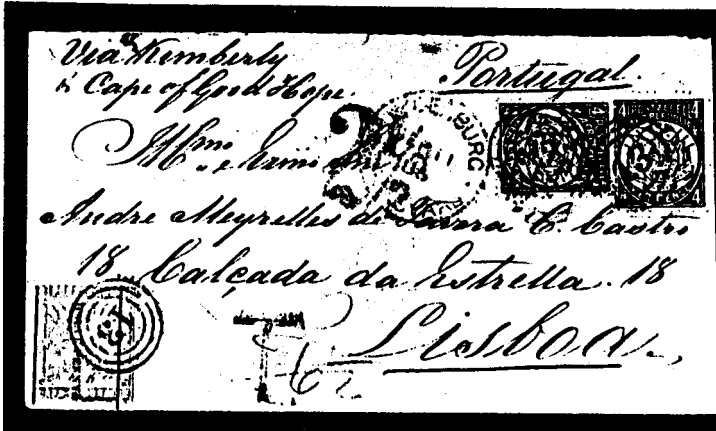 Via Kimberly
& Cape of Good Hope.
Portugal.
BURG
Illmo. e Exmo Snr
Andre Meyrelles de Tavora C. Castro
18 Calçada da Estrella. 18
Lisboa.
T